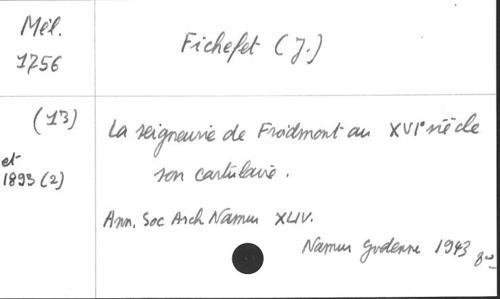 Mél.
1756
Fichefet (J.)
(13)
et
1893 (2)
La seigneurie de Froidmont au XVIe siècle
son cartulaire.
Ann. Soc Arch Namur XLIV.
Namur Godenne 1943 8º